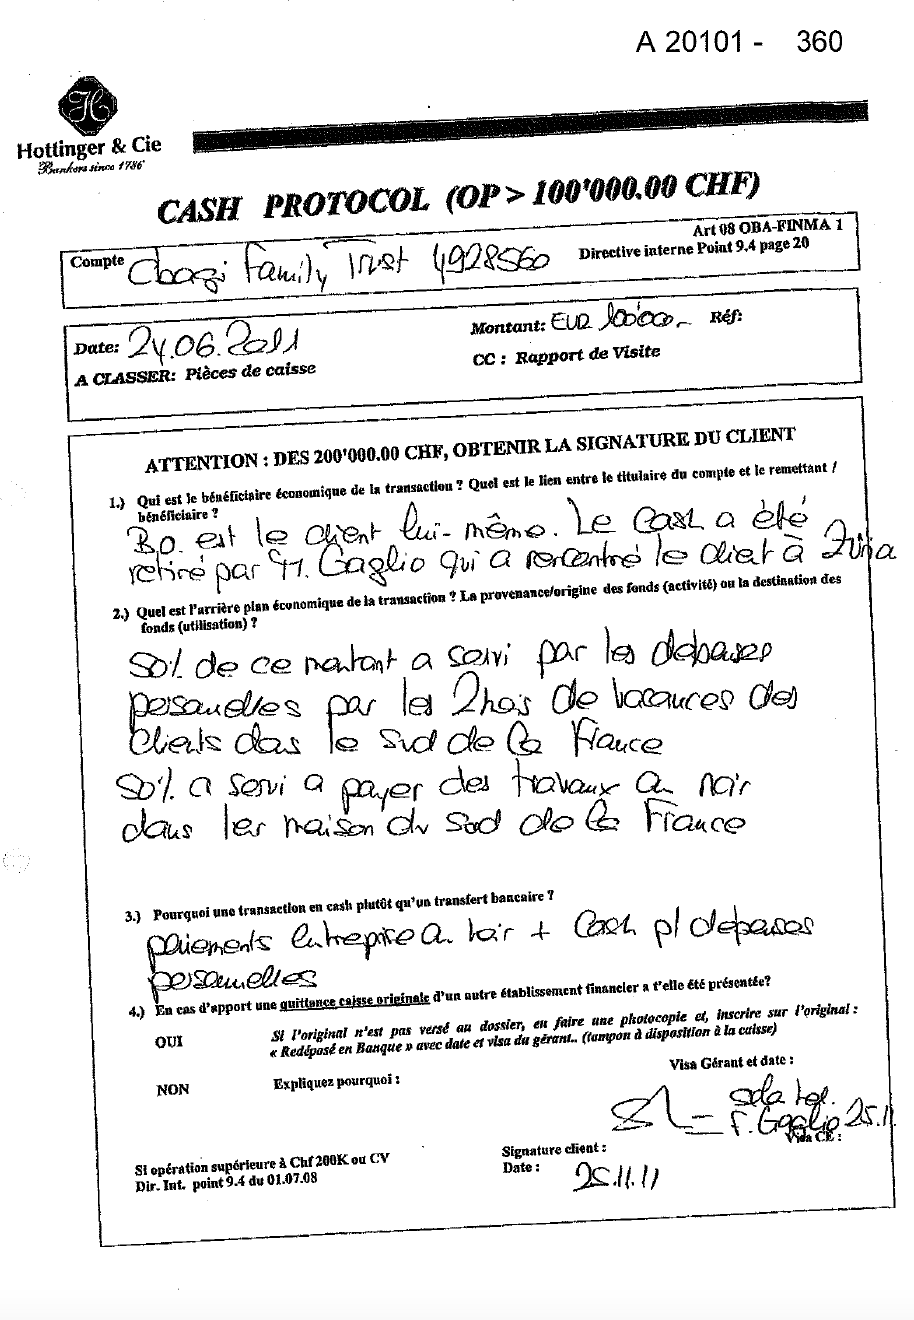 A 20101 - 360
H
Hottinger & Cie
Bankers since 1786
CASH PROTOCOL (OP > 100'000.00 CHF)
Art 08 OBA-FINMA 1
Compte Family Trust 4928560 Directive interne Point 9.4 page 20
Date: 24.06.2011 Montant: EUR 100'000.- Réf:
A CLASSER: Pièces de caisse CC : Rapport de Visite
ATTENTION : DES 200'000.00 CHF, OBTENIR LA SIGNATURE DU CLIENT
1.) Qui est le bénéficiaire économique de la transaction ? Quel est le lien entre le titulaire du compte et le remettant /
bénéficiaire ?
B.O. est le client lui-même. Le cash a été
retiré par M. Gaglio qui a rencontré le client à
2.) Quel est l'arrière plan économique de la transaction ? La provenance/origine des fonds (activité) ou la destination des
fonds (utilisation) ?
50% de ce montant a servi par les depases
personelles par les 2 mois de vacances des
clients dans le sud de la France
50% a servi a payer des travaux au noir
dans les maison du sud de la France
3.) Pourquoi une transaction en cash plutôt qu'un transfert bancaire ?
paiements entreprise au noir + cash p/ depases
personelles
4.) En cas d'apport une quittance caisse originale d'un autre établissement financier a t'elle été présentée?
OUI Si l'original n'est pas versé au dossier, en faire une photocopie et, inscrire sur l'original :
« Redéposé en Banque » avec date et visa du gérant.. (tampon à disposition à la caisse)
NON Expliquez pourquoi :
Visa Gérant et date :
F. Gaglio 25.11
Visa CE :
Signature client :
Date : 25.11.11
Si opération supérieure à Chf 200K ou CV
Dir. Int. point 9.4 du 01.07.08